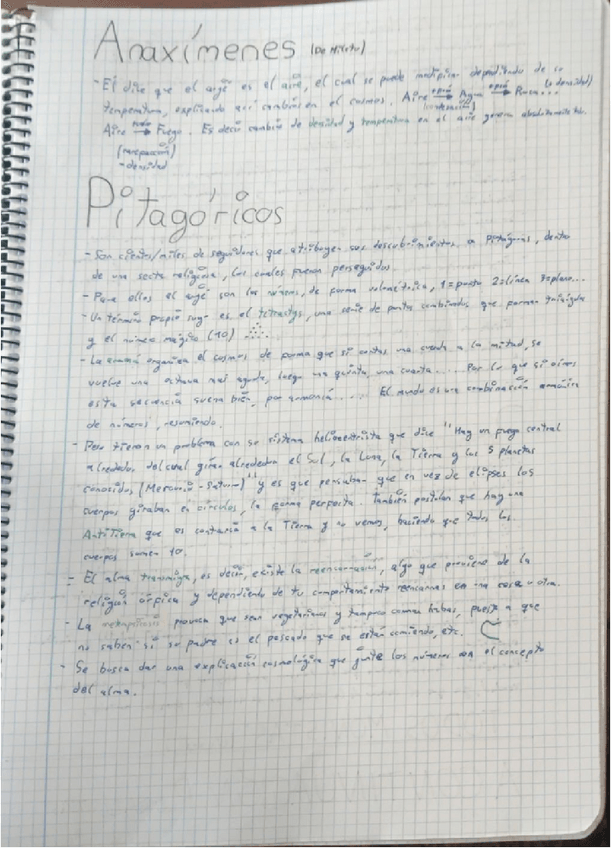 Anaxímenes (De Mileto)
- Él dice que el argé es el aire, el cual se puede modificar dependiendo de su
temperatura, explicando así cambios en el cosmos. Aire → Agua → Roca... (+ densidad)
Aire → Fuego. Es decir cambio de densidad y temperatura en el aire genera absolutamente
(rarefacción)
- densidad
Pitagóricos
- Son cientos/miles de seguidores que atribuyen sus descubrimientos a Pitágoras, dentro
de una secta religiosa, los cuales fueron perseguidos.
- Para ellos el argé son los números, de forma volumétrica, 1=punto 2=línea 3=plano...
- Un término propio suyo es el tetractys, una serie de puntos combinados que forman triángulo
y el número mágico (10)
- La armonía organiza el cosmos de forma que si cortas una cuerda a la mitad, se
vuelve una octava más aguda, luego una quinta, una cuarta.... Por lo que si oímos
esta secuencia suena bien, por armonía.... El mundo es una combinación armónica
de números, resumiendo.
- Pero tienen un problema con su sistema heliocentrista que dice "Hay un fuego central
alrededor del cual giran alrededor el Sol, la Luna, la Tierra y los 5 planetas
conocidos (Mercurio-Saturno)" y es que pensaban que en vez de elipses los
cuerpos giraban en círculos, la forma perfecta. También postulan que hay una
AntiTierra que es contraria a la Tierra y no vemos, haciendo que todos los
cuerpos sumen 10.
- El alma transmigra, es decir, existe la reencarnación, algo que proviene de la
religión órfica y dependiendo de tu comportamiento reencarnas en una cosa u otra.
- La metempsicosis provoca que sean vegetarianos y tampoco coman habas, puesto a que
no saben si su padre es el pescado que se están comiendo, etc.
- Se busca dar una explicación cosmológica que junte los números con el concepto
del alma.